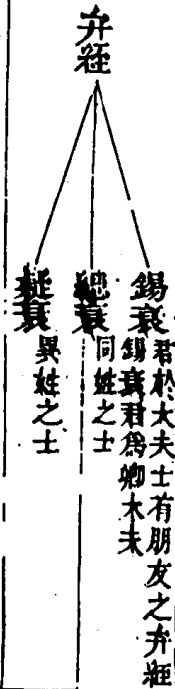 弁絰
錫衰
君於大夫士有朋友之弁絰
錫衰君爲卿大夫
緦衰
同姓之士
疑衰
異姓之士